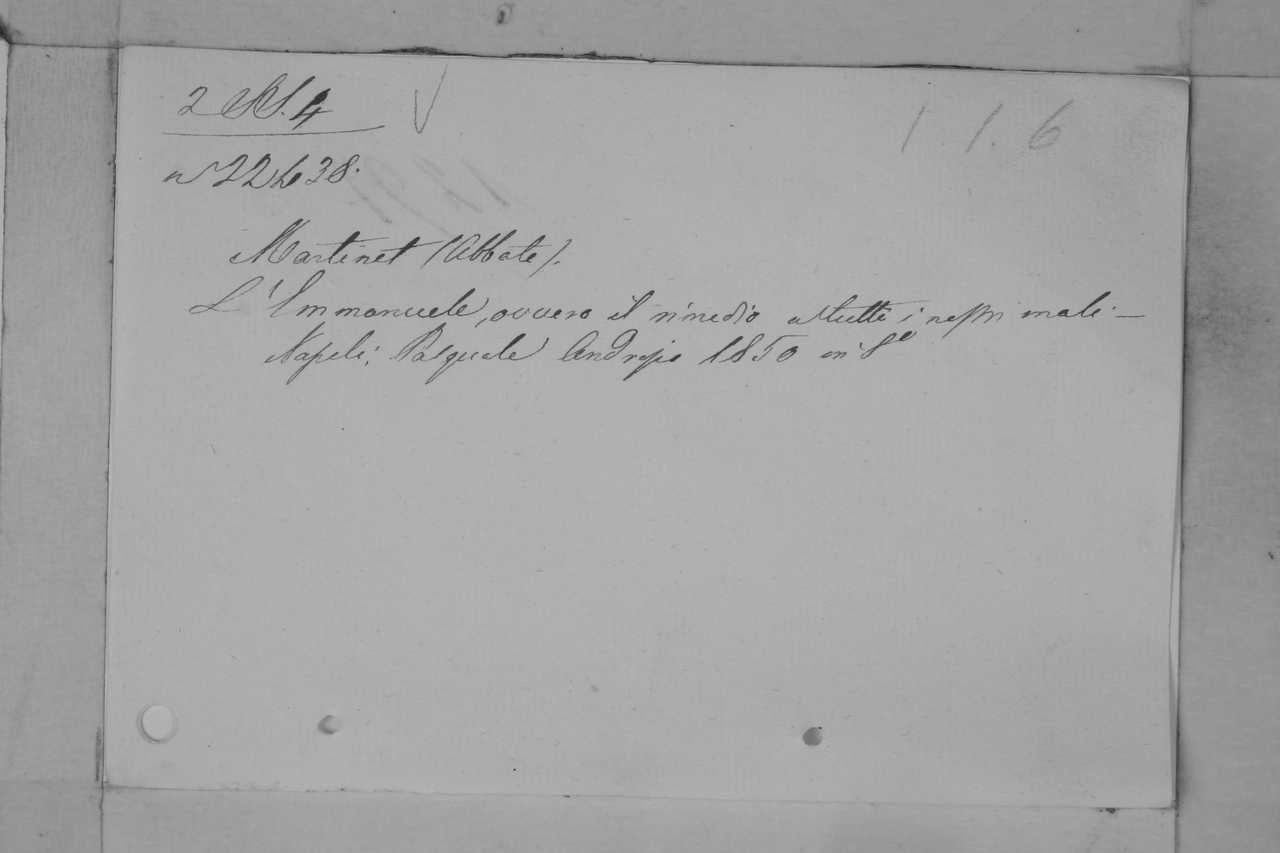 2 SS. 4
1. 1. 6
n 22638.
Martinet (Abbate).
L'Emmanuele, ovvero il rimedio a tutti i nostri mali. —
Napoli; Pasquale Androsio 1850 in 8º